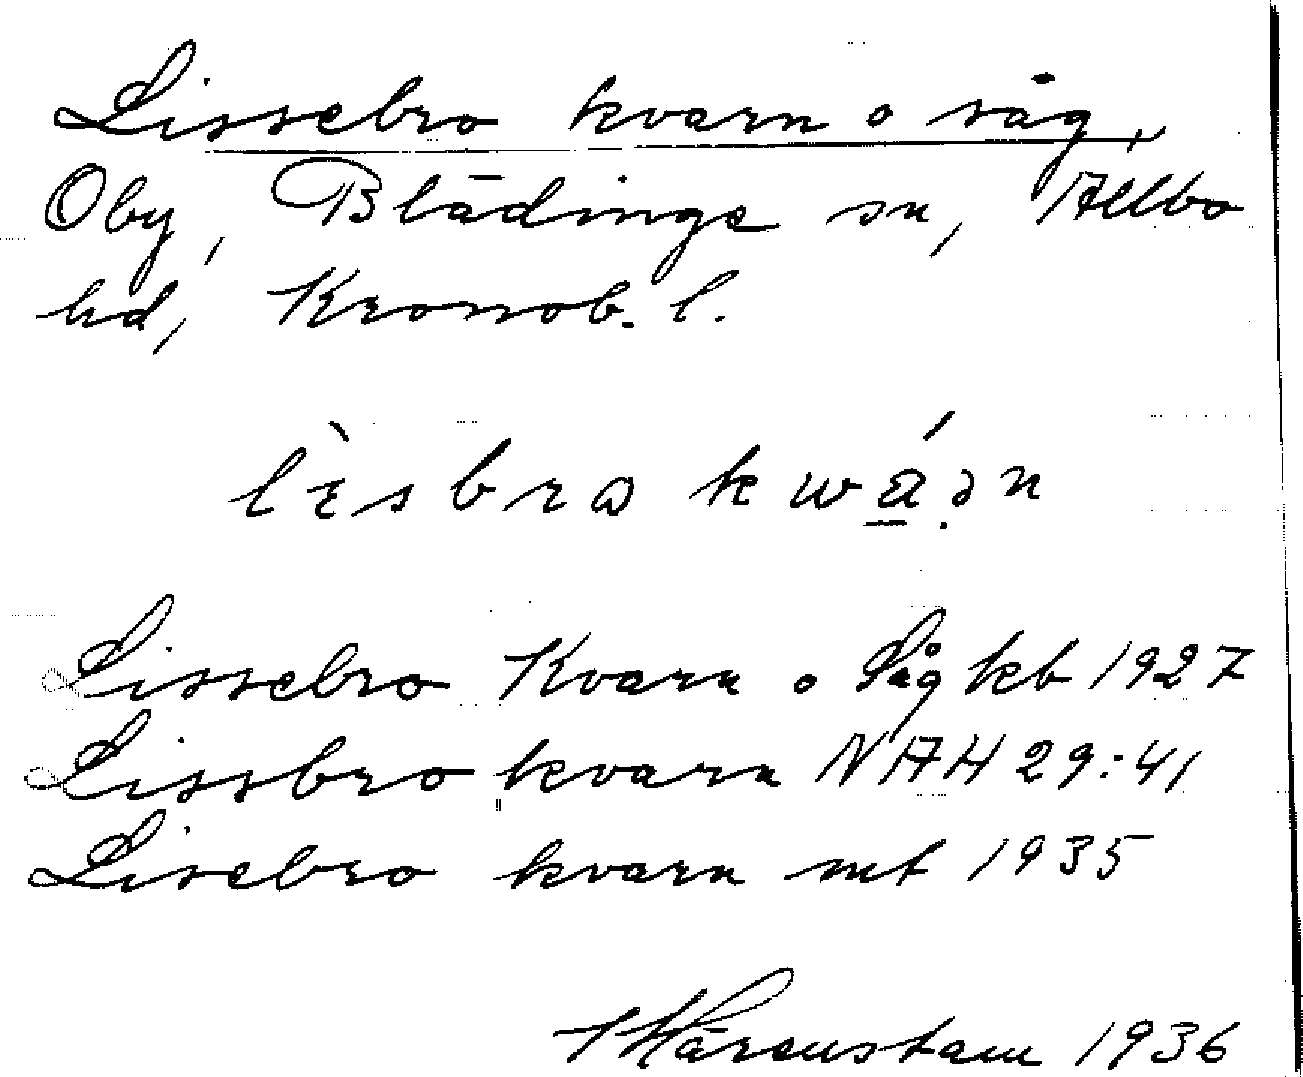 Lissebro kvarn o såg,
Oby, Blädinge sn, Allbo
hd, Kronob. l.
lìsbro kwá̱ṇn
Lissebro Kvarn o Såg kb 1927
Lissbro kvarn NAH 29:41
Lisebro kvarn mt 1935
Härenstam 1936